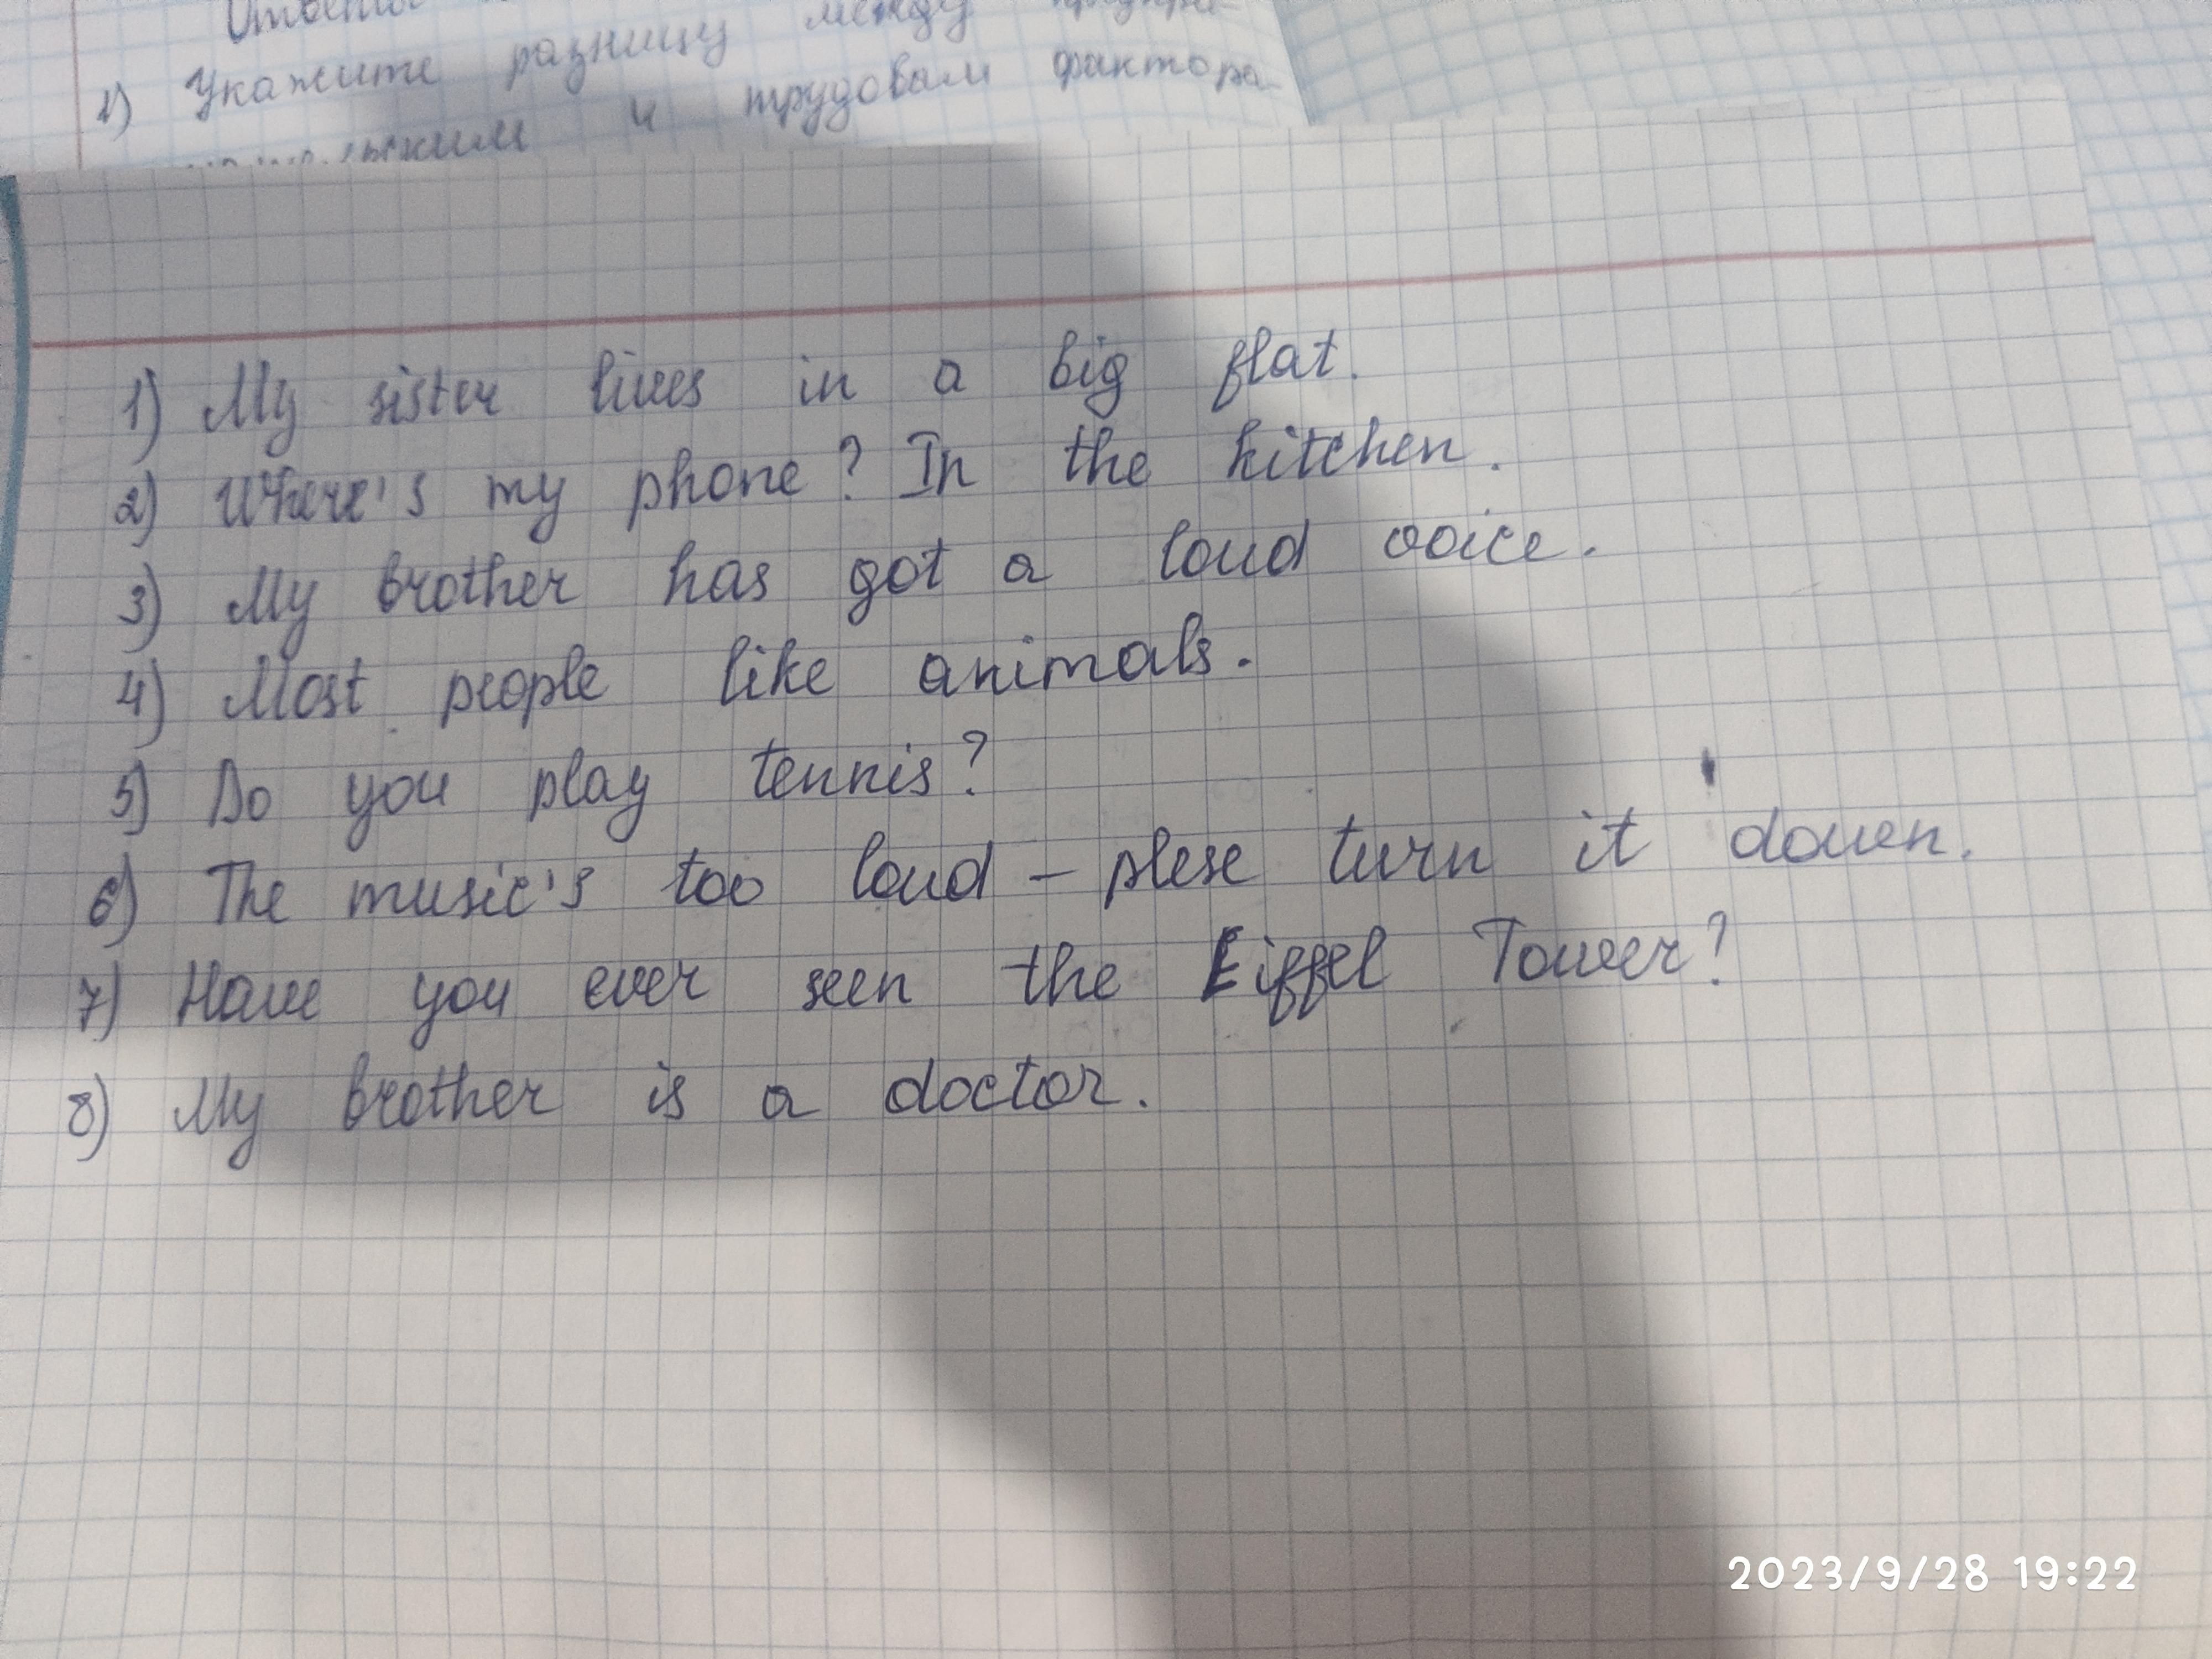 1) Укажите разницу между
и трудовым фактора-
1) My sister lives in a big flat.
2) Where's my phone? In the kitchen.
3) My brother has got a loud voice.
4) Most people like animals.
5) Do you play tennis?
6) The music's too loud – plese turn it down.
7) Have you ever seen the Eiffel Tower?
8) My brother is a doctor.
2023/9/28 19:22